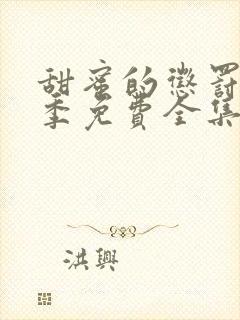 甜蜜的懲罰
季免費全集
洪興